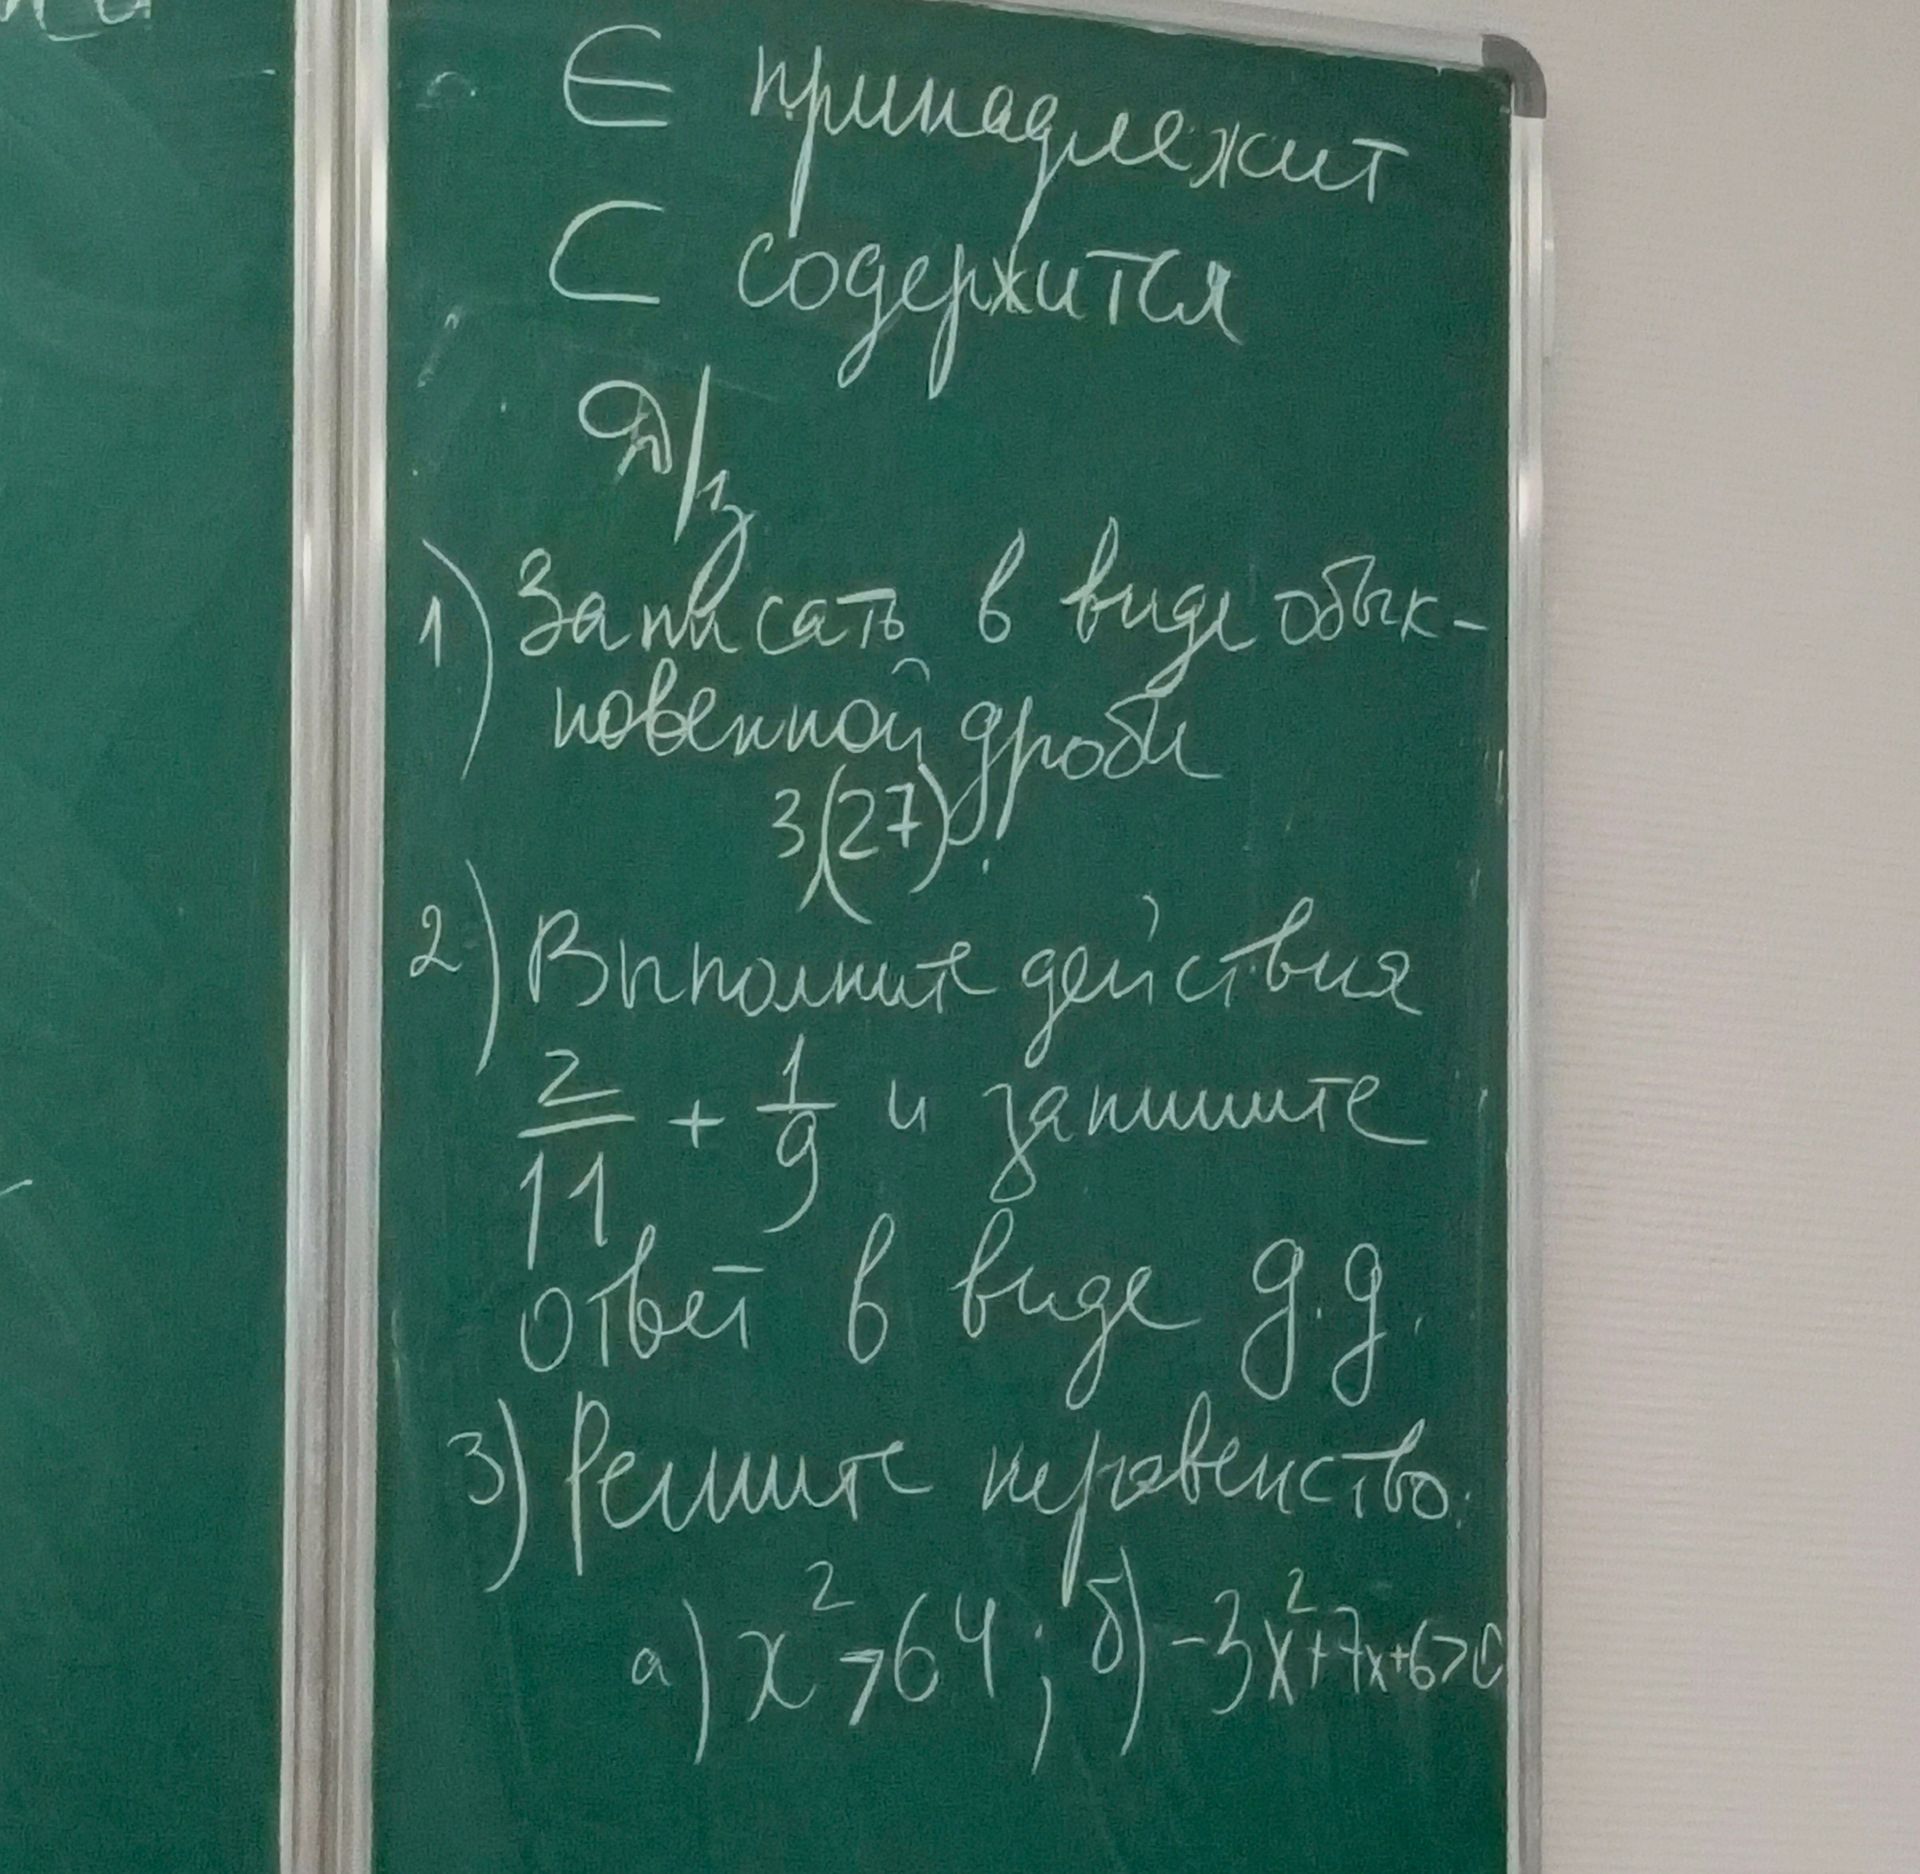 ∈ принадлежит
⊂ содержится
Д/з
1) Записать в виде обык-
новенной дроби
3,(27).
2) Выполните действия
2/11 + 1/9 и запишите
ответ в виде д.д.
3) Решите неравенство:
а) x² > 64; б) -3x²+7x+6>0